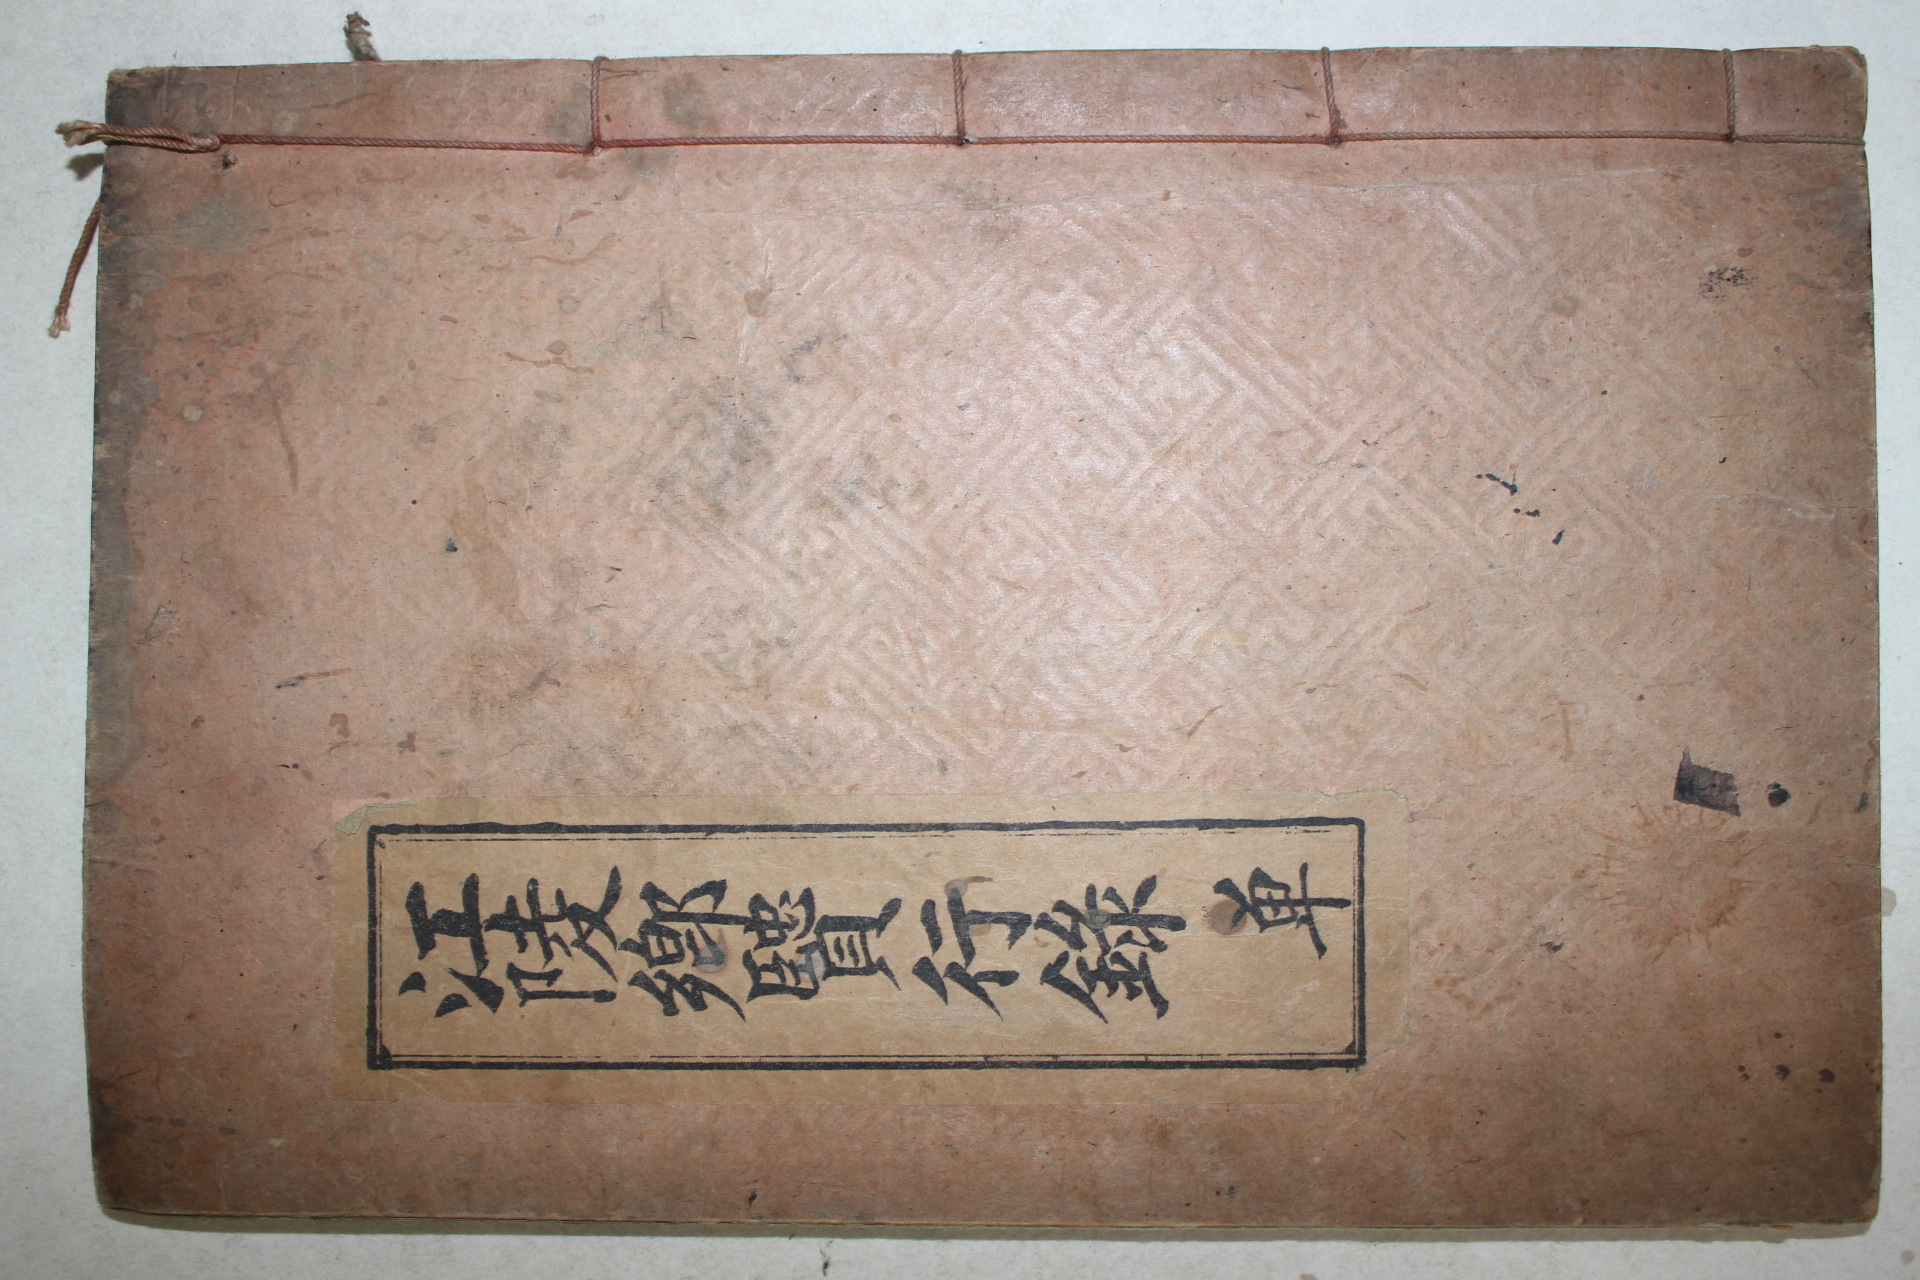 江陵鄕賢行錄 单